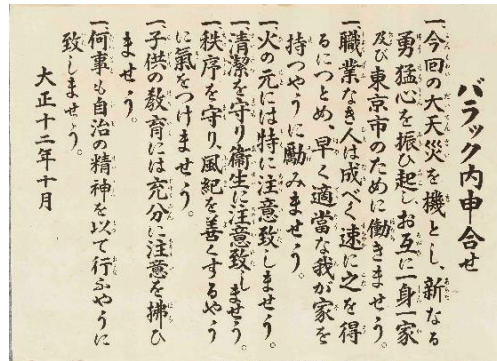 バラック内申合せ
一、今回の大天災を機とし、新なる
勇猛心を振ひ起し、お互に一身一家
及び東京市のために働きませう。
一、職業なき人は成べく速に之を得
るにつとめ、早く適當な我が家を
持つやうに勵みませう。
一、火の元には特に注意致しませう。
一、清潔を守り衞生に注意致しませう。
一、秩序を守り、風紀を善くするやう
に氣をつけませう。
一、子供の教育には充分に注意を拂ひ
ませう。
一、何事も自治の精神を以て行ふやうに
致しませう。
大正十二年十月